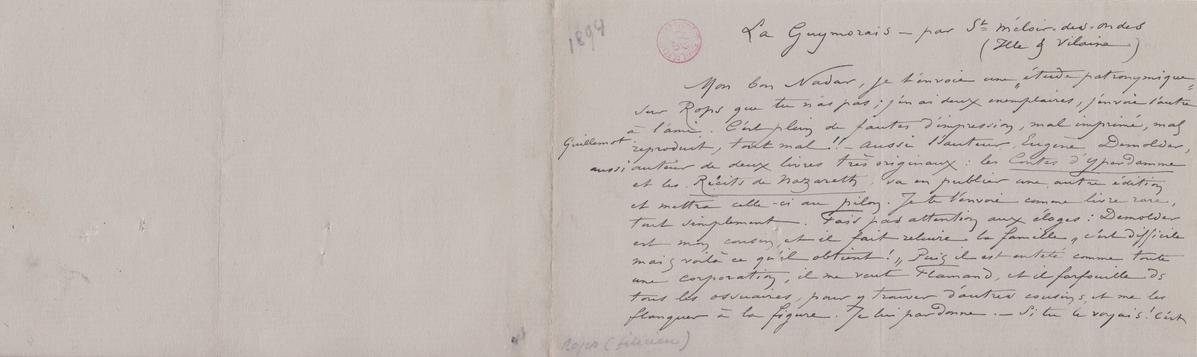 1894
La Guymorais – par St Méloir-des-ondes
(Ille & Vilaine)
Mon bon Nadar, je t'envoie une "étude patronymique"
sur Rops que tu n'as pas ; j'en ai deux exemplaires, j'envoie l'autre
à l'ami Guillemot. C'est plein de fautes d'impression, mal imprimé, mal
reproduit, tout mal !! – Aussi l'auteur, Eugène Demolder,
aussi auteur de deux livres très originaux : les Contes d'Yperdamme
et les Récits de Nazareth, va en publier une autre édition
et mettre celle-ci au pilon. Je te l'envoie comme livre rare,
tout simplement. Fais pas attention aux éloges : Demolder
est mon cousin, et il fait reluire la famille, c'est difficile
mais voilà ce qu'il obtient ! " Puis il est entêté comme toute
une corporation, il me veut Flamand, et il farfouille ds
tous les ossuaires, pour y trouver d'autres cousins, et me les
flanquer à la figure. Je lui pardonne. – Si tu le voyais ! C'est
Rops (Félicien)